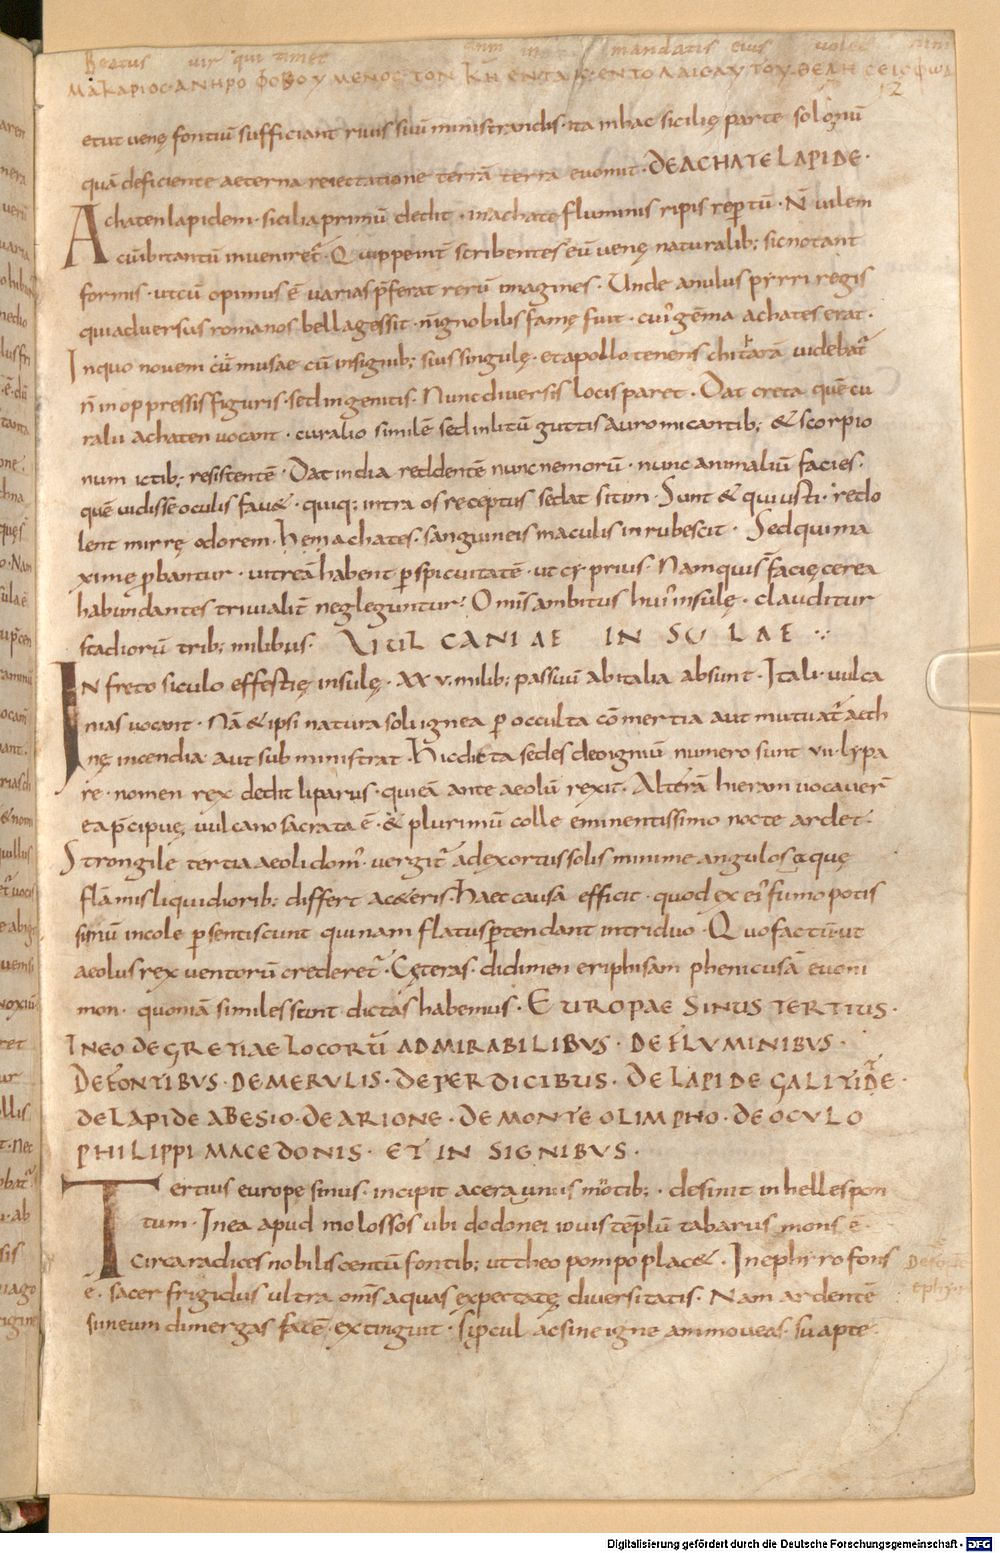 Beatus vir qui timet mandatis eius volet
ΜΑΚΑΡΙΟϹ·ΑΝΗΡ Ο ΦΟΒΟΥΜΕΝΟϹ·ΤΟΝ ΚΝ ΕΝΤΑΙϹ ΕΝΤΟΛΑΙϹ ΑΥΤΟΥ·ΘΕΛΗϹΕΙ
12
etut venę fontiū sufficiant rivis suū ministrandis· ita inhac sicilię parte solonū
quā deficiente aeterna reiectatione terrā terra evomit· DE ACHATE LAPIDE·
Achaten lapidem· sicilia primū dedit· in achate fluminis ripis reptū· N̄ vilem
cū ibitantū inveniret᷑· Quippeint̄ scribentes eū venę naturalib; sic notant
formis· ut cū opimus ē varias p̄ferat rerū imagines· Unde anulus pyrri regis
qui adversus romanos bella gessit· n̄ ignobilis famę fuit· cui᷒ gēma achates erat·
Inquo novem cū musae cū insignib; suis singulę· et apollo tenens chitarā videbat᷑
n̄ in oppressis figuris· sed ingenitis· Nunc diversis locis paret· Dat creta quē cu
ralii achaten vocant· curalio similē sed inlitū guttis auro micantib; & scorpio
num ictib; resistentē· Dat india reddentē nunc nemorū· nunc animaliū facies·
quē vidisse oculis fav&· quiq; intra os receptus sedat sitim· Sunt & qui usti· redo
lent mirrę odorem· Hemachates· sanguineis maculis inrubescit· Sed qui ma
ximę pbantur· vitreā habent pspicuitatē· ut cy·prius· Nam quis facię cerea
habundantes trivialit̄ negleguntur· Omis ambitus hui᷒ insulę· clauditur
stadiorū trib; milibus· VULCANIAE INSULAE
In freto siculo effestię insulę· XXV· milib; passuū ab italia absunt· Itali· vulca
nias vocant· Nā & ipsi natura soli ignea p occulta cōmertia aut mutuat᷑ aeth
nę incendia· aut sub ministrat· Hic dicta sedes deo igniū numero sunt VII· lypa
re· nomen rex dedit liparus· qui eā ante aeolū rexit· Alterā hieram vocaver̄
ea p̄cipuę vulcano sacrata ē· & plurimū colle eminentissimo nocte ardet·
Strongile tertia aeoli dom᷒· vergit᷑ ad exortus solis minime angulosa quę
flāmis liquidiorib; differt a c&eris· Haec causa efficit· quod ex ei᷒ fumo potis
simū incole psentiscunt quinam flatus ptendant in triduo· Quo factū ut
aeolus rex ventorū crederet᷑· Cęteras· didimen eriphisam phenicusā evoni
mon· quoniā similes sunt dictas habemus· EUROPAE SINUS TERTIUS·
IN EO DE GRETIAE LOCORŪ ADMIRABILIBUS· DE FLUMINIBUS·
DE FONTIBUS· DE MERULIS· DE PERDICIBUS· DE LAPIDE GALITIDE·
DE LAPIDE ABESIO· DE ARIONE· DE MONTE OLIMPHO· DE OCULO
PHILIPPI MACEDONIS· ET IN SIGNIBUS·
Tertius europę sinus· incipit a ceraunuis mōtib;· desinit in hellespon
tum· In ea apud molossos ubi dodonei iovis tēplū tabarus mons ē·
circa radices nobilis centū fontib; ut theopompo plac&· In ephyro fons
Defonte
ē· sacer frigidus ultra om̄s aquas expectatę diversitatis· Nam ardentē
ephyr
si in eum dimergas facē· extinguit· si pcul ac sine igne ammoveas· suapte·
Digitalisierung gefördert durch die Deutsche Forschungsgemeinschaft - DFG